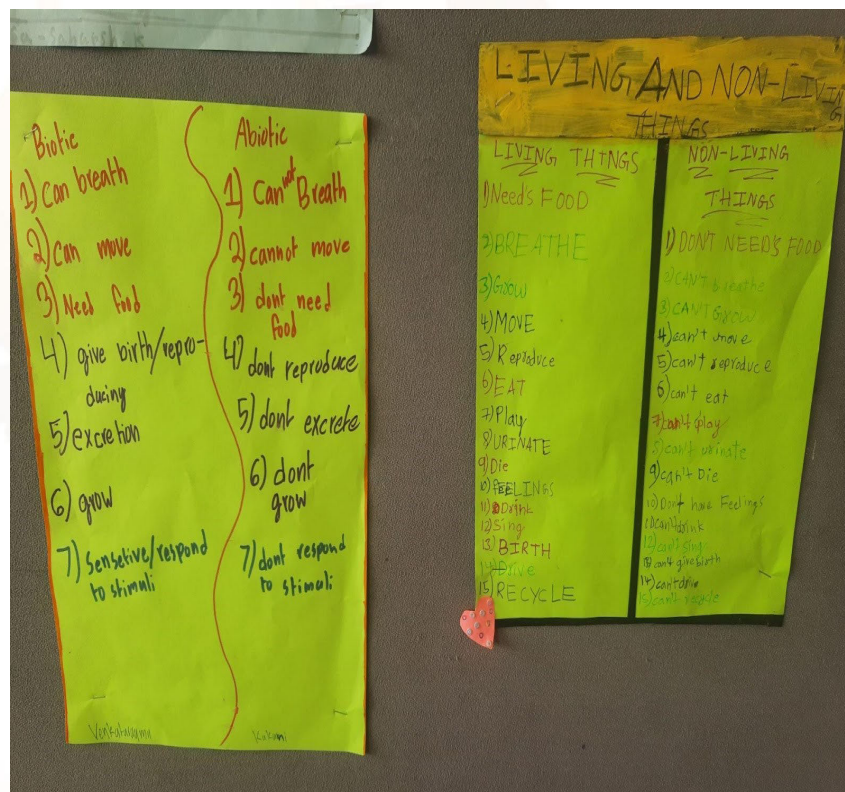 Biotic
1) Can breath
2) Can move
3) Need food
4) give birth/repro-
ducing
5) excretion
6) grow
7) Sensetive/respond
to stimuli
Abiotic
1) Cannot Breath
2) cannot move
3) dont need
food
4) dont reproduce
5) dont excrete
6) dont
grow
7) dont respond
to stimuli
LIVING AND NON-LIVING
THINGS
LIVING THINGS
1) Need's FOOD
2) BREATHE
3) Grow
4) MOVE
5) Reproduce
6) EAT
7) Play
8) URINATE
9) Die
10) FEELINGS
11) Drink
12) Sing
13) BIRTH
14) Drive
15) RECYCLE
NON-LIVING
THINGS
1) DON'T NEED'S FOOD
2) CAN'T breathe
3) CAN'T GROW
4) can't move
5) can't reproduce
6) can't eat
7) can't play
8) can't urinate
9) can't Die
10) Don't have Feelings
11) can't drink
12) can't sing
13) can't give birth
14) can't drive
15) can't recycle